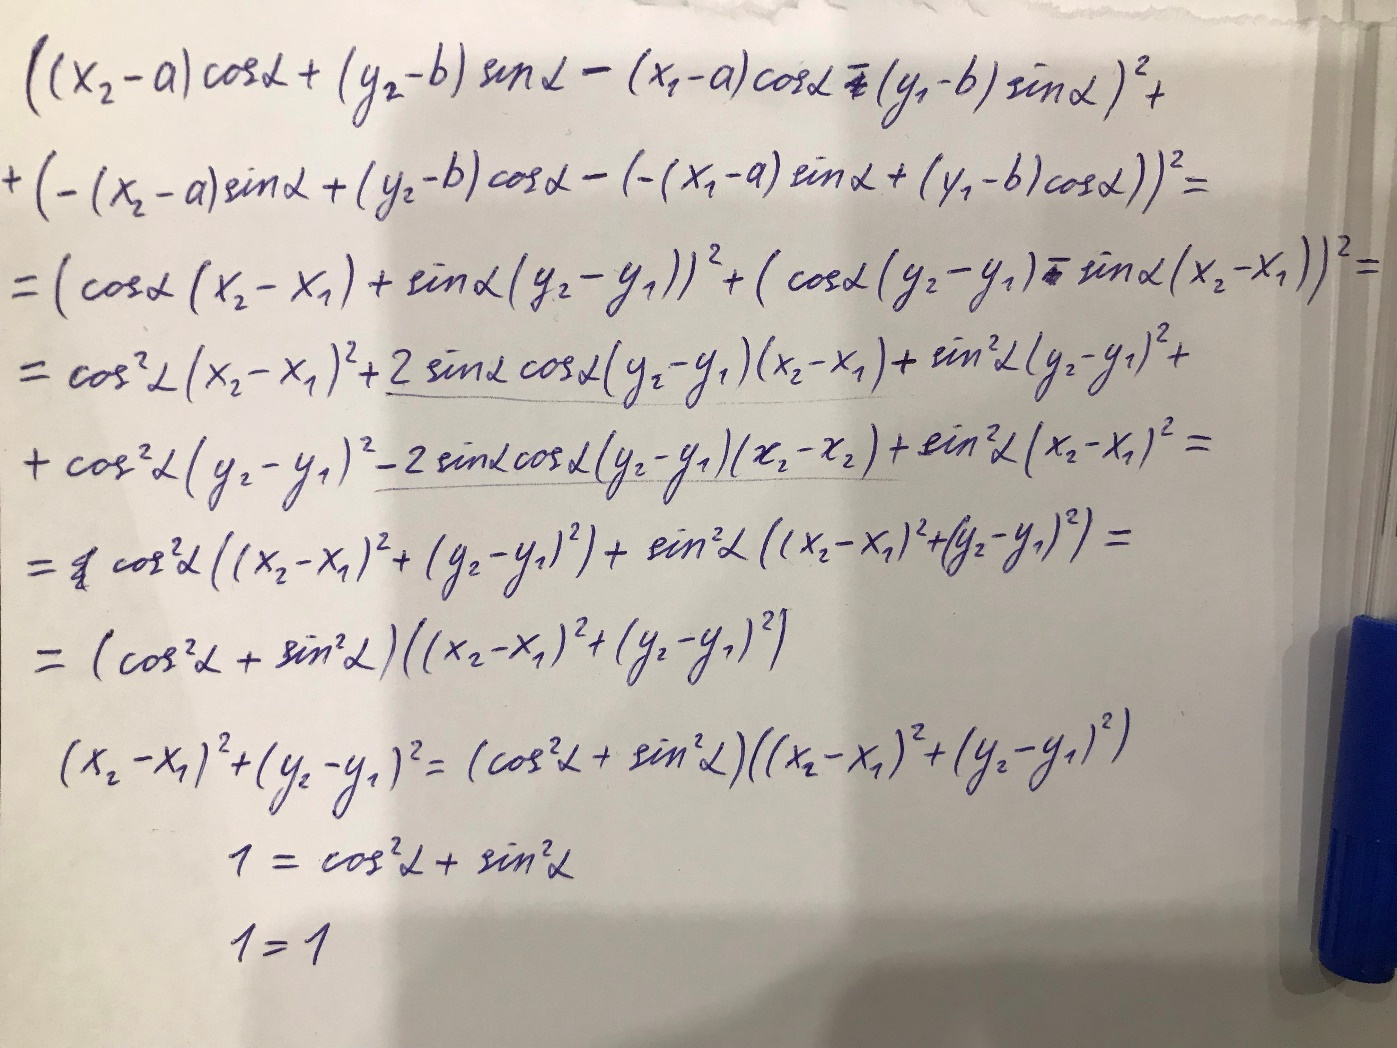 ((x₂-a)cosα+(y₂-b)sinα-(x₁-a)cosα-(y₁-b)sinα)²+
+(-(x₂-a)sinα+(y₂-b)cosα-(-(x₁-a)sinα+(y₁-b)cosα))²=
=(cosα(x₂-x₁)+sinα(y₂-y₁))²+(cosα(y₂-y₁)-sinα(x₂-x₁))²=
=cos²α(x₂-x₁)²+2sinαcosα(y₂-y₁)(x₂-x₁)+sin²α(y₂-y₁)²+
+cos²α(y₂-y₁)²-2sinαcosα(y₂-y₁)(x₂-x₂)+sin²α(x₂-x₁)²=
=cos²α((x₂-x₁)²+(y₂-y₁)²)+sin²α((x₂-x₁)²+(y₂-y₁)²)=
=(cos²α+sin²α)((x₂-x₁)²+(y₂-y₁)²)
(x₂-x₁)²+(y₂-y₁)²=(cos²α+sin²α)((x₂-x₁)²+(y₂-y₁)²)
1=cos²α+sin²α
1=1